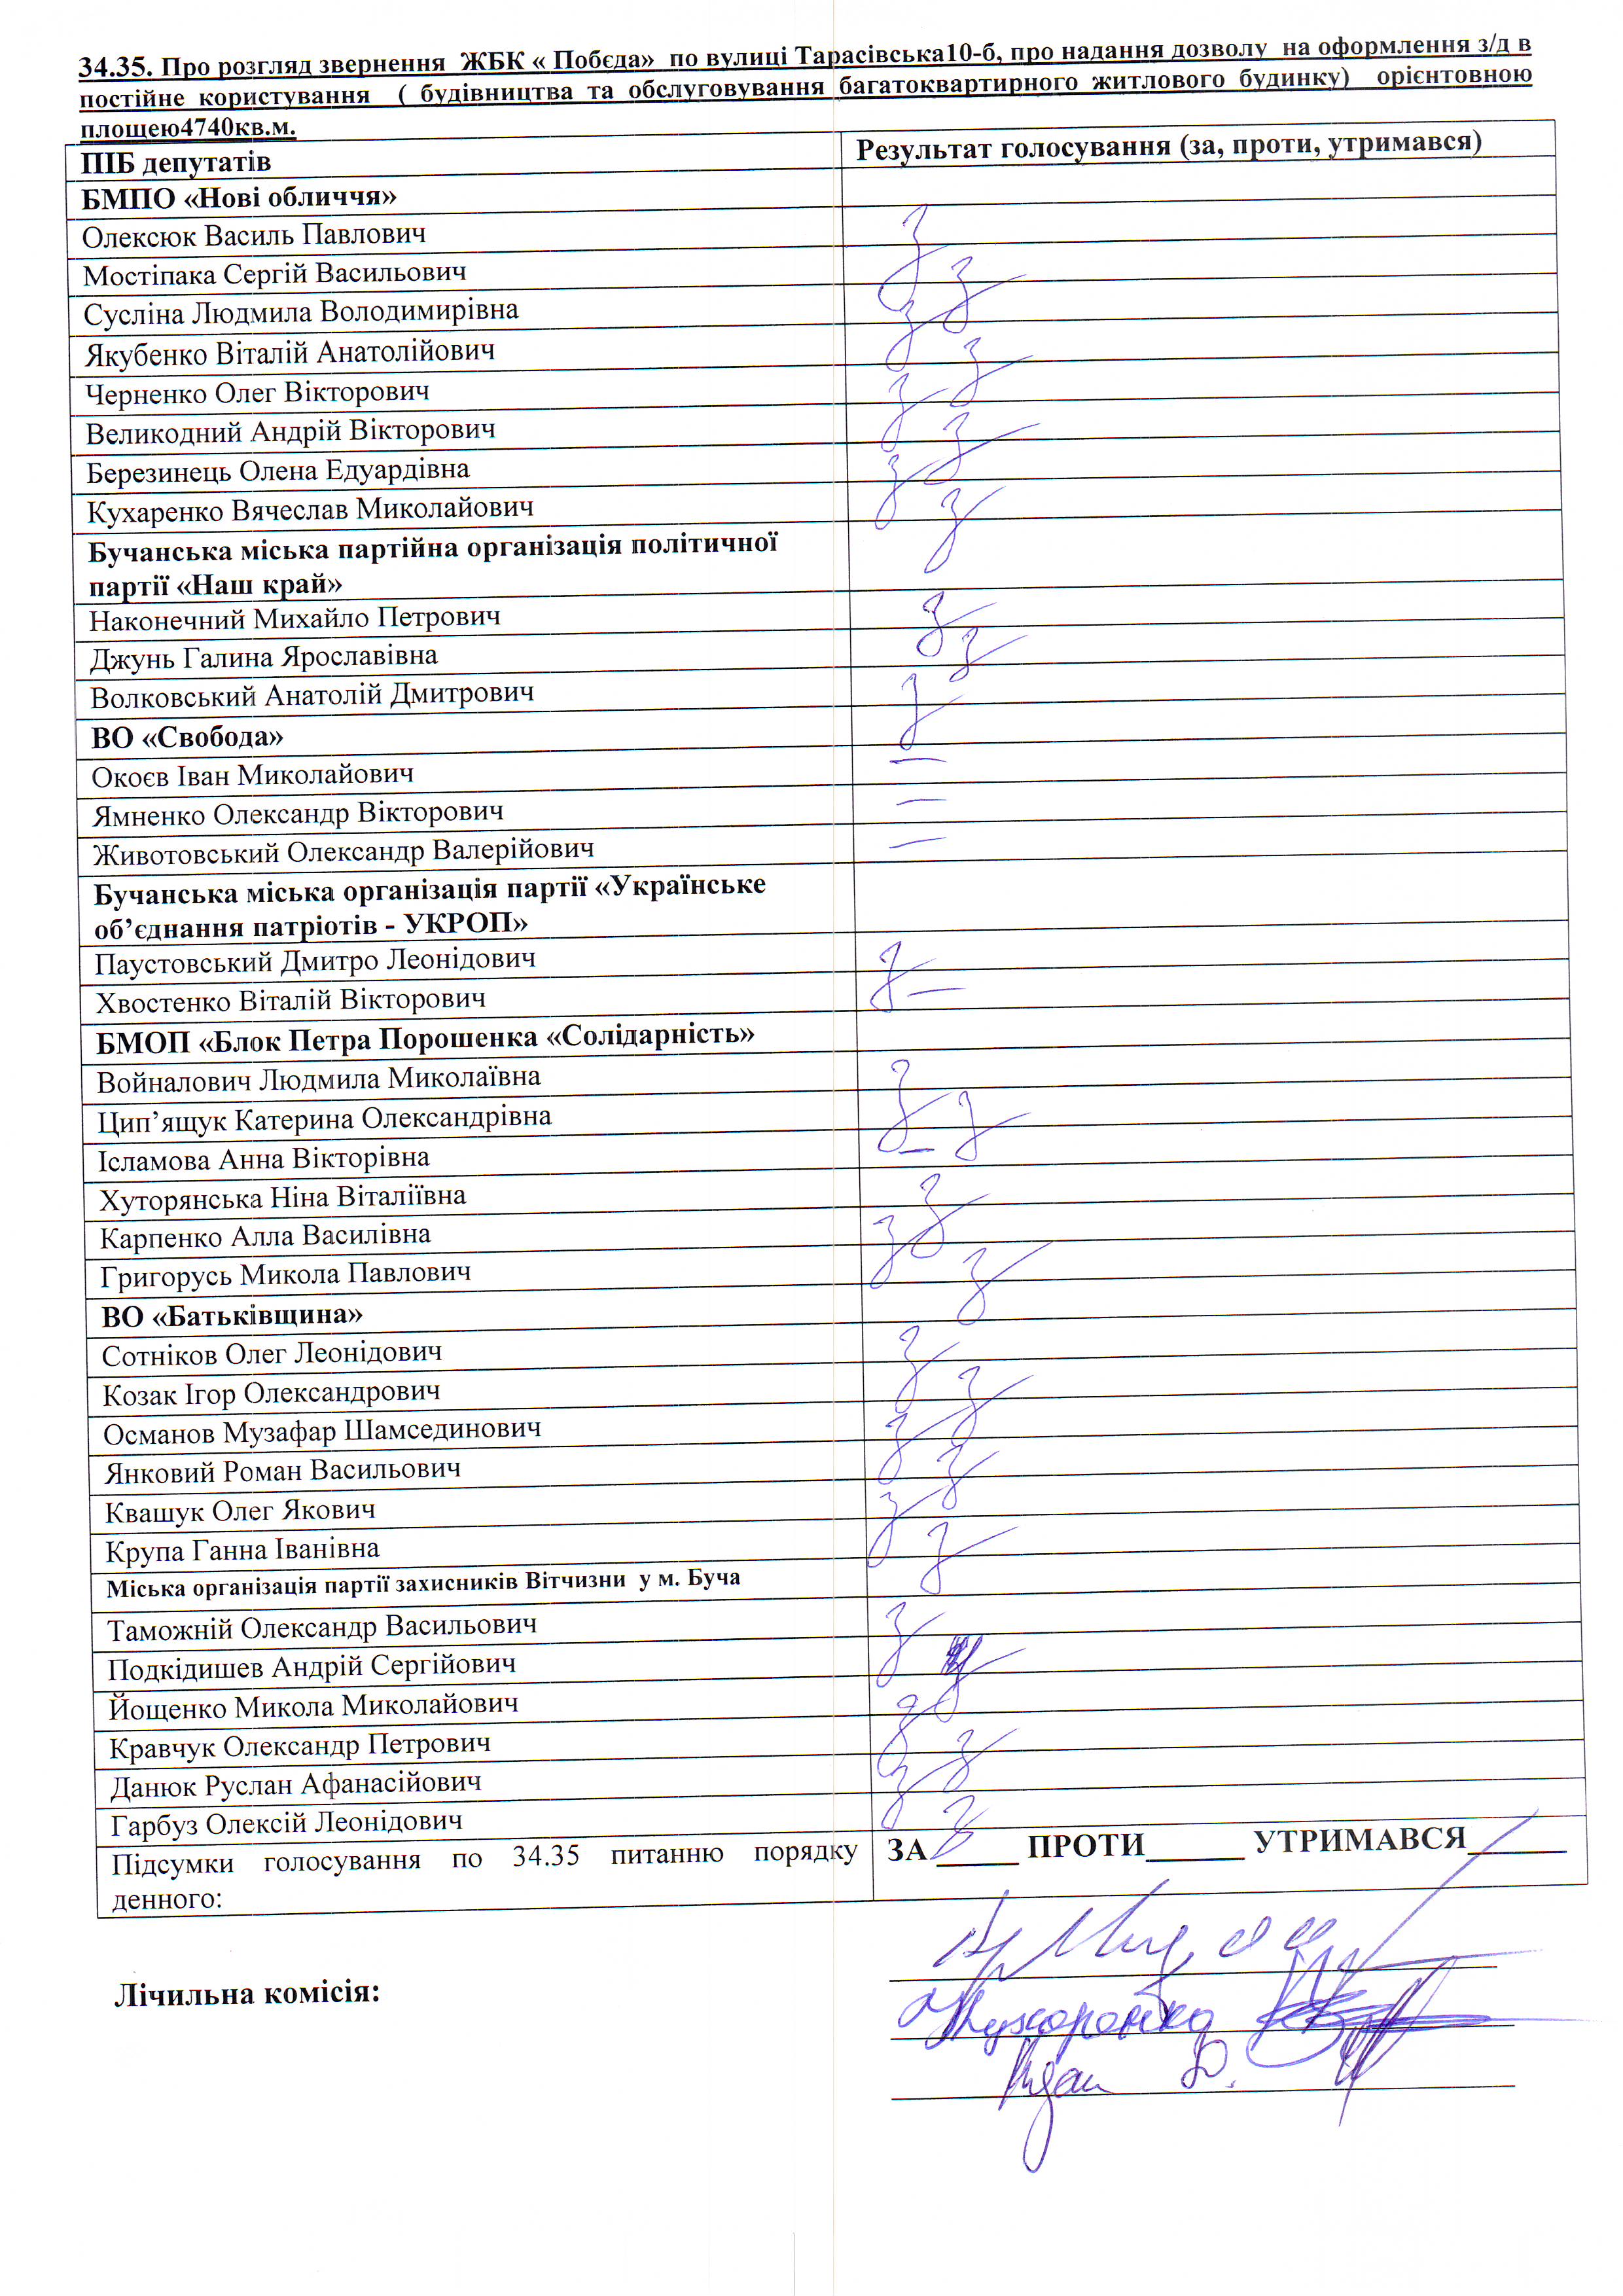 34.35. Про розгляд звернення ЖБК « Побєда» по вулиці Тарасівська10-б, про надання дозволу на оформлення з/д в
постійне користування ( будівництва та обслуговування багатоквартирного житлового будинку) орієнтовною
площею4740кв.м.
ПІБ депутатів Результат голосування (за, проти, утримався)
БМПО «Нові обличчя»
Олексюк Василь Павлович з
Мостіпака Сергій Васильович з
Сусліна Людмила Володимирівна з
Якубенко Віталій Анатолійович з
Черненко Олег Вікторович з
Великодний Андрій Вікторович з
Березинець Олена Едуардівна з
Кухаренко Вячеслав Миколайович з
Бучанська міська партійна організація політичної
партії «Наш край»
Наконечний Михайло Петрович з
Джунь Галина Ярославівна з
Волковський Анатолій Дмитрович з
ВО «Свобода»
Окоєв Іван Миколайович —
Ямненко Олександр Вікторович —
Животовський Олександр Валерійович —
Бучанська міська організація партії «Українське
об’єднання патріотів - УКРОП»
Паустовський Дмитро Леонідович з
Хвостенко Віталій Вікторович —
БМОП «Блок Петра Порошенка «Солідарність»
Войналович Людмила Миколаївна з
Цип’ящук Катерина Олександрівна з
Ісламова Анна Вікторівна —
Хуторянська Ніна Віталіївна з
Карпенко Алла Василівна з
Григорусь Микола Павлович з
ВО «Батьківщина»
Сотніков Олег Леонідович з
Козак Ігор Олександрович з
Османов Музафар Шамсединович з
Янковий Роман Васильович з
Квашук Олег Якович з
Крупа Ганна Іванівна з
Міська організація партії захисників Вітчизни у м. Буча
Таможній Олександр Васильович з
Подкідишев Андрій Сергійович з
Йощенко Микола Миколайович з
Кравчук Олександр Петрович з
Данюк Руслан Афанасійович з
Гарбуз Олексій Леонідович з
Підсумки голосування по 34.35 питанню порядку ЗА _____ ПРОТИ______ УТРИМАВСЯ______
денного:
Лічильна комісія: